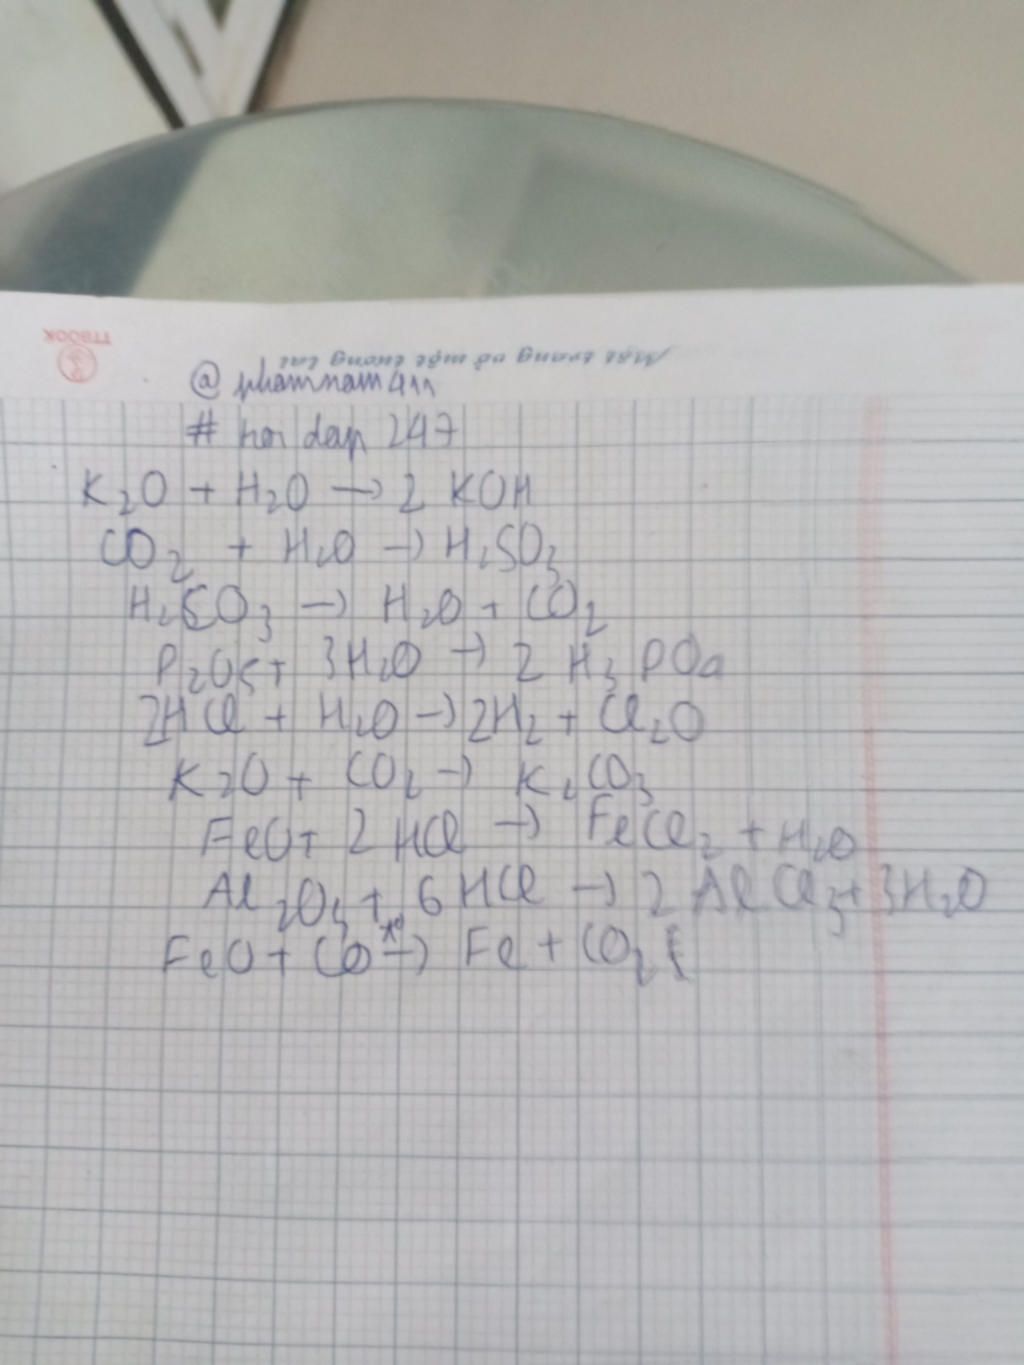 TTBOOK
3
@phamnam4nn
# hoi dap 247
K₂O + H₂O → 2 KOH
CO₂ + H₂O → H₂SO₃
H₂CO₃ → H₂O + CO₂
P₂O₅ + 3H₂O → 2 H₃PO₄
2HCl + H₂O → 2H₂ + Cl₂O
K₂O + CO₂ → K₂CO₃
FeO + 2 HCl → FeCl₂ + H₂O
Al₂O₃ + 6 HCl → 2 AlCl₃ + 3H₂O
FeO + CO → Fe + CO₂